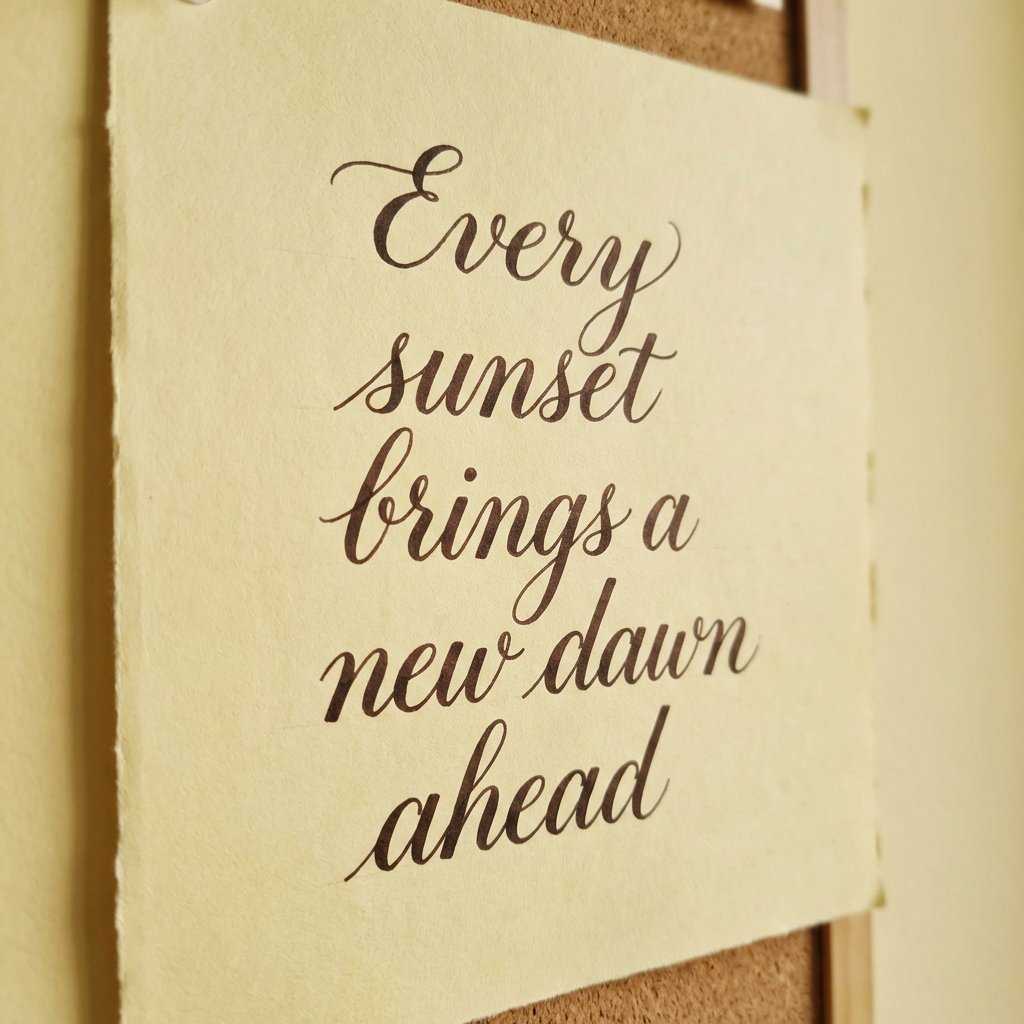 Every
sunset
brings a
new dawn
ahead